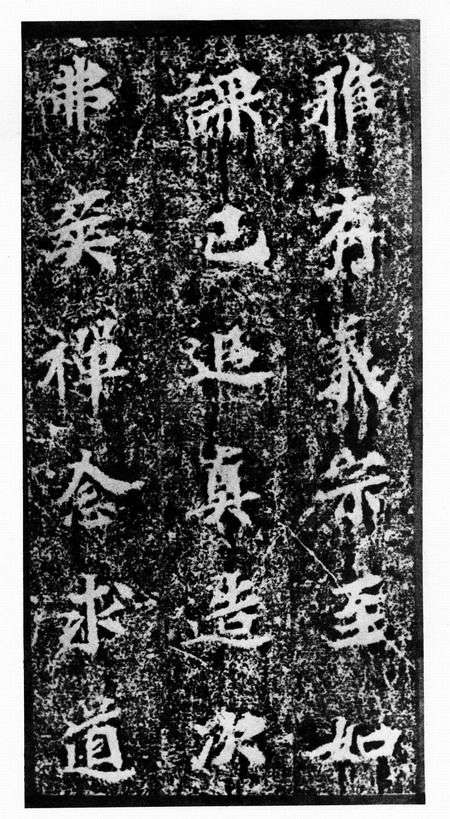 雅有義宗至如
課己追真造次
弗爽禪念求道